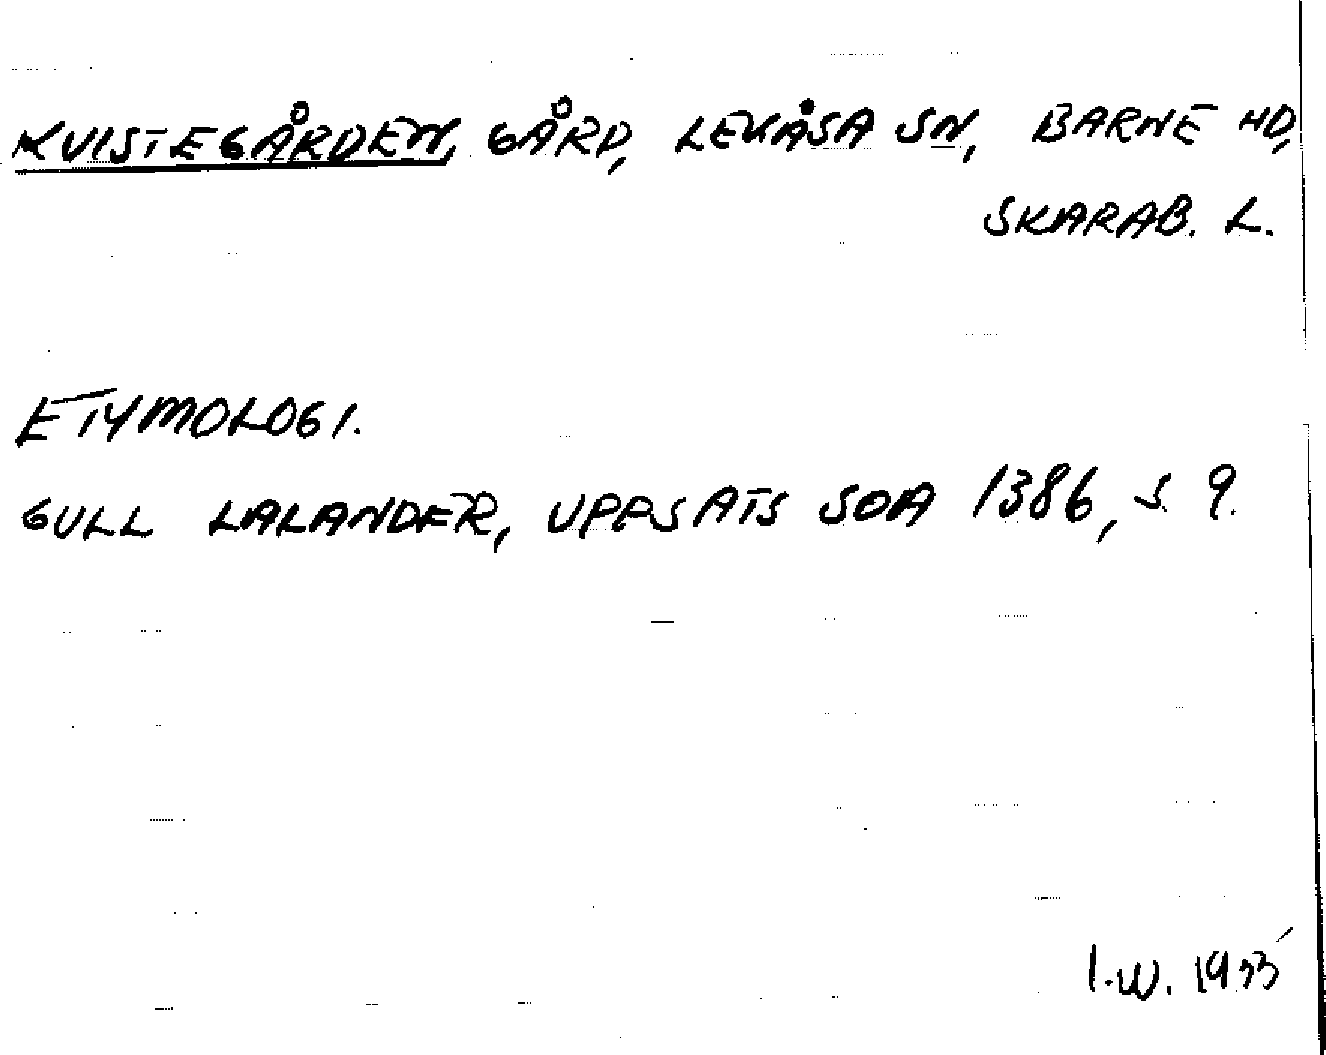 KVISTEGÅRDEN, GÅRD, LEKÅSA SN, BARNE HD,
SKARAB. L.
ETYMOLOGI.
GULL LALANDER, UPPSATS SOA 1386, S. 9.
I.W.